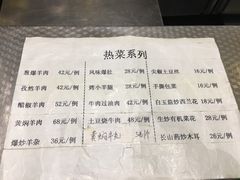 热菜系列
葱爆羊肉 42元/例 风味爆肚 28元/例 尖椒土豆丝 16元/例
孜然羊肉 42元/例 烤小羊腿 28元/例 手撕包菜 18元/例
醋椒羊肉 52元/例 牛肉过油肉 42元/例 白玉菇炒西兰花 18元/例
黄焖羊肉 68元/例 土豆烧牛肉 48元/例 生炒有机菜花 28元/例
爆炒羊杂 36元/例 黄焖牛丸 长山药炒木耳 28元/例